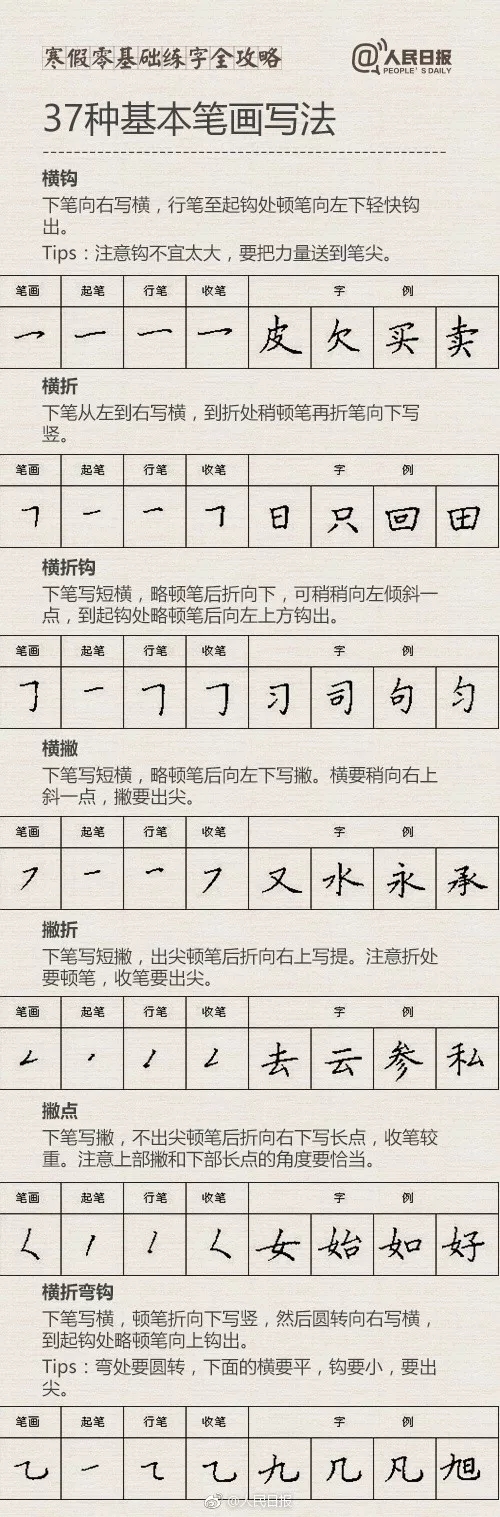 寒假零基础练字全攻略
@人民日报
PEOPLE'S DAILY
37种基本笔画写法
横钩
下笔向右写横，行笔至起钩处顿笔向左下轻快钩
出。
Tips：注意钩不宜太大，要把力量送到笔尖。
笔画 起笔 行笔 收笔 字 例
乛 一 一 乛 皮 欠 买 卖
横折
下笔从左到右写横，到折处稍顿笔再折笔向下写
竖。
笔画 起笔 行笔 收笔 字 例
𠃍 一 一 𠃍 日 只 回 田
横折钩
下笔写短横，略顿笔后折向下，可稍稍向左倾斜一
点，到起钩处略顿笔后向左上方钩出。
笔画 起笔 行笔 收笔 字 例
𠃌 一 𠃍 𠃌 习 司 句 匀
横撇
下笔写短横，略顿笔后向左下写撇。横要稍向右上
斜一点，撇要出尖。
笔画 起笔 行笔 收笔 字 例
㇇ 一 乛 ㇇ 又 水 永 承
撇折
下笔写短撇，出尖顿笔后折向右上写提。注意折处
要顿笔，收笔要出尖。
笔画 起笔 行笔 收笔 字 例
𠃋 丿 丿 𠃋 去 云 参 私
撇点
下笔写撇，不出尖顿笔后折向右下写长点，收笔较
重。注意上部撇和下部长点的角度要恰当。
笔画 起笔 行笔 收笔 字 例
𡿨 丿 丿 𡿨 女 始 如 好
横折弯钩
下笔写横，顿笔折向下写竖，然后圆转向右写横，
到起钩处略顿笔向上钩出。
Tips：弯处要圆转，下面的横要平，钩要小，要出
尖。
笔画 起笔 行笔 收笔 字 例
㇈ 一 ㇈ ㇈ 九 几 凡 旭
@人民日报